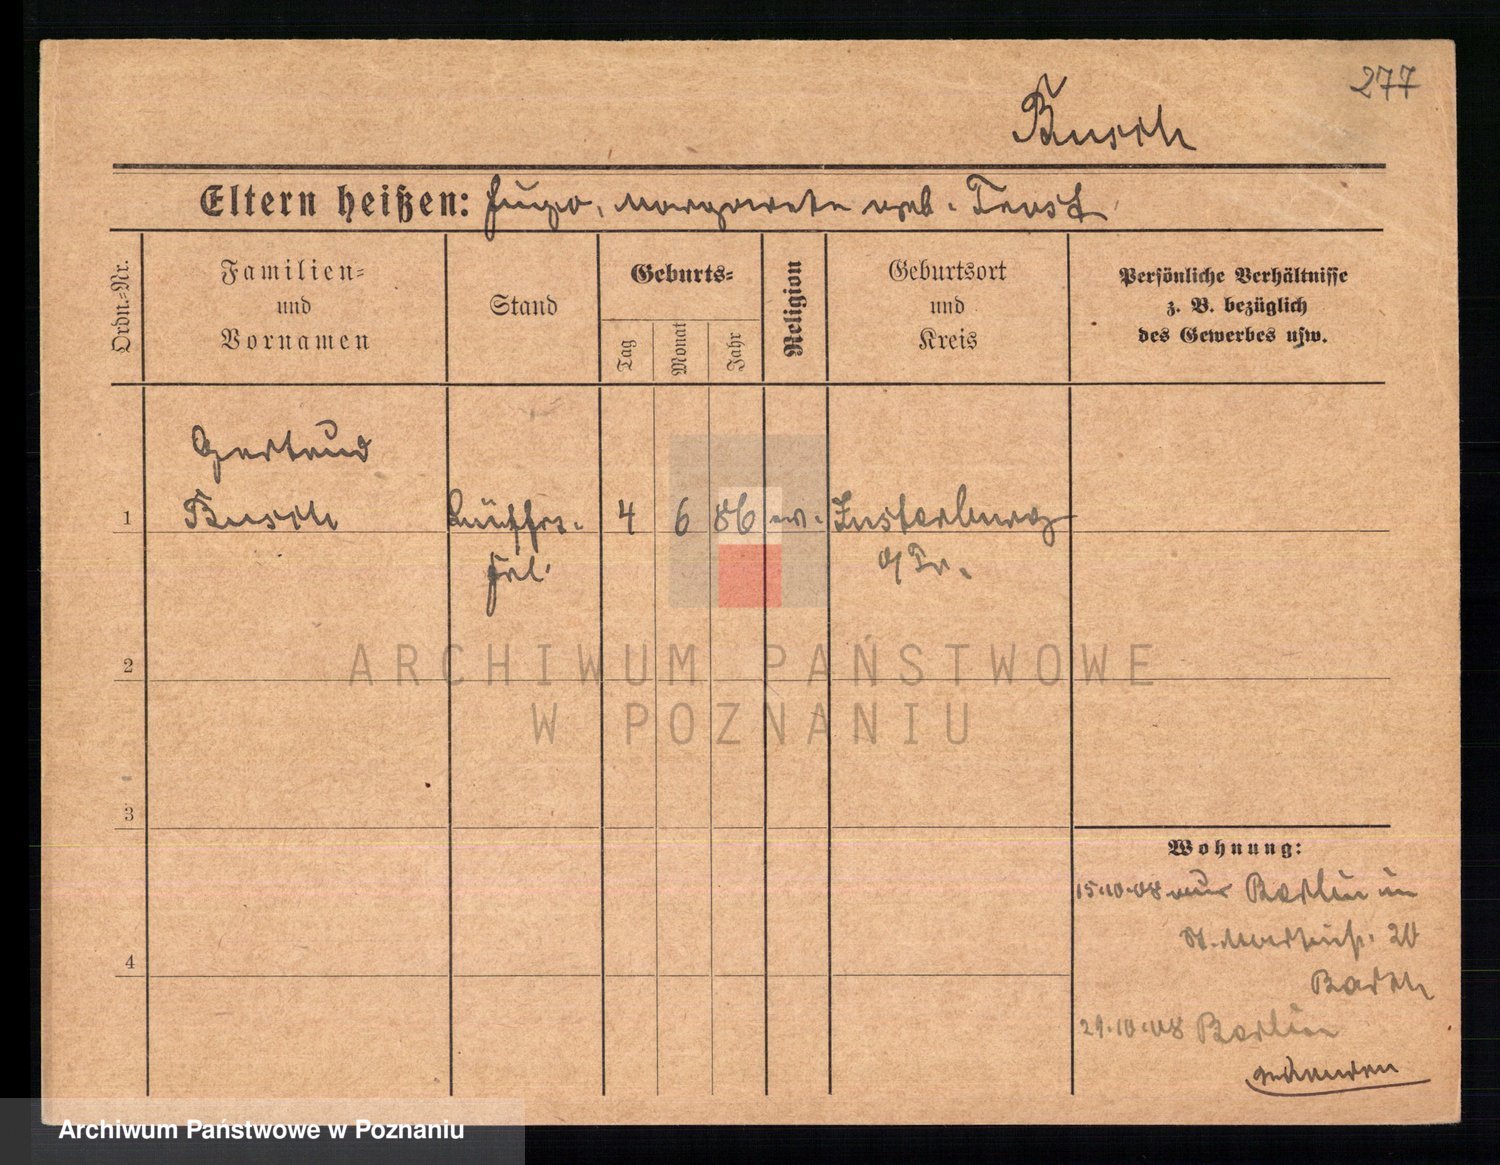 277
Busch
Eltern heißen: Hugo, Margarete geb. Trost
Ordn.=Nr.
Familien=
und
Vornamen
Stand
Geburts=
Tag
Monat
Jahr
Religion
Geburtsort
und
Kreis
Persönliche Verhältnisse
z. B. bezüglich
des Gewerbes usw.
Gertrud
1 Busch Büffrs. 4 6 86 ev. Insterburg
frl. O/Pr.
2
3
4
Wohnung:
15.10.08 aus Berlin in
St. 20
29.10.08 Berlin
ARCHIWUM PAŃSTWOWE
W POZNANIU
Archiwum Państwowe w Poznaniu